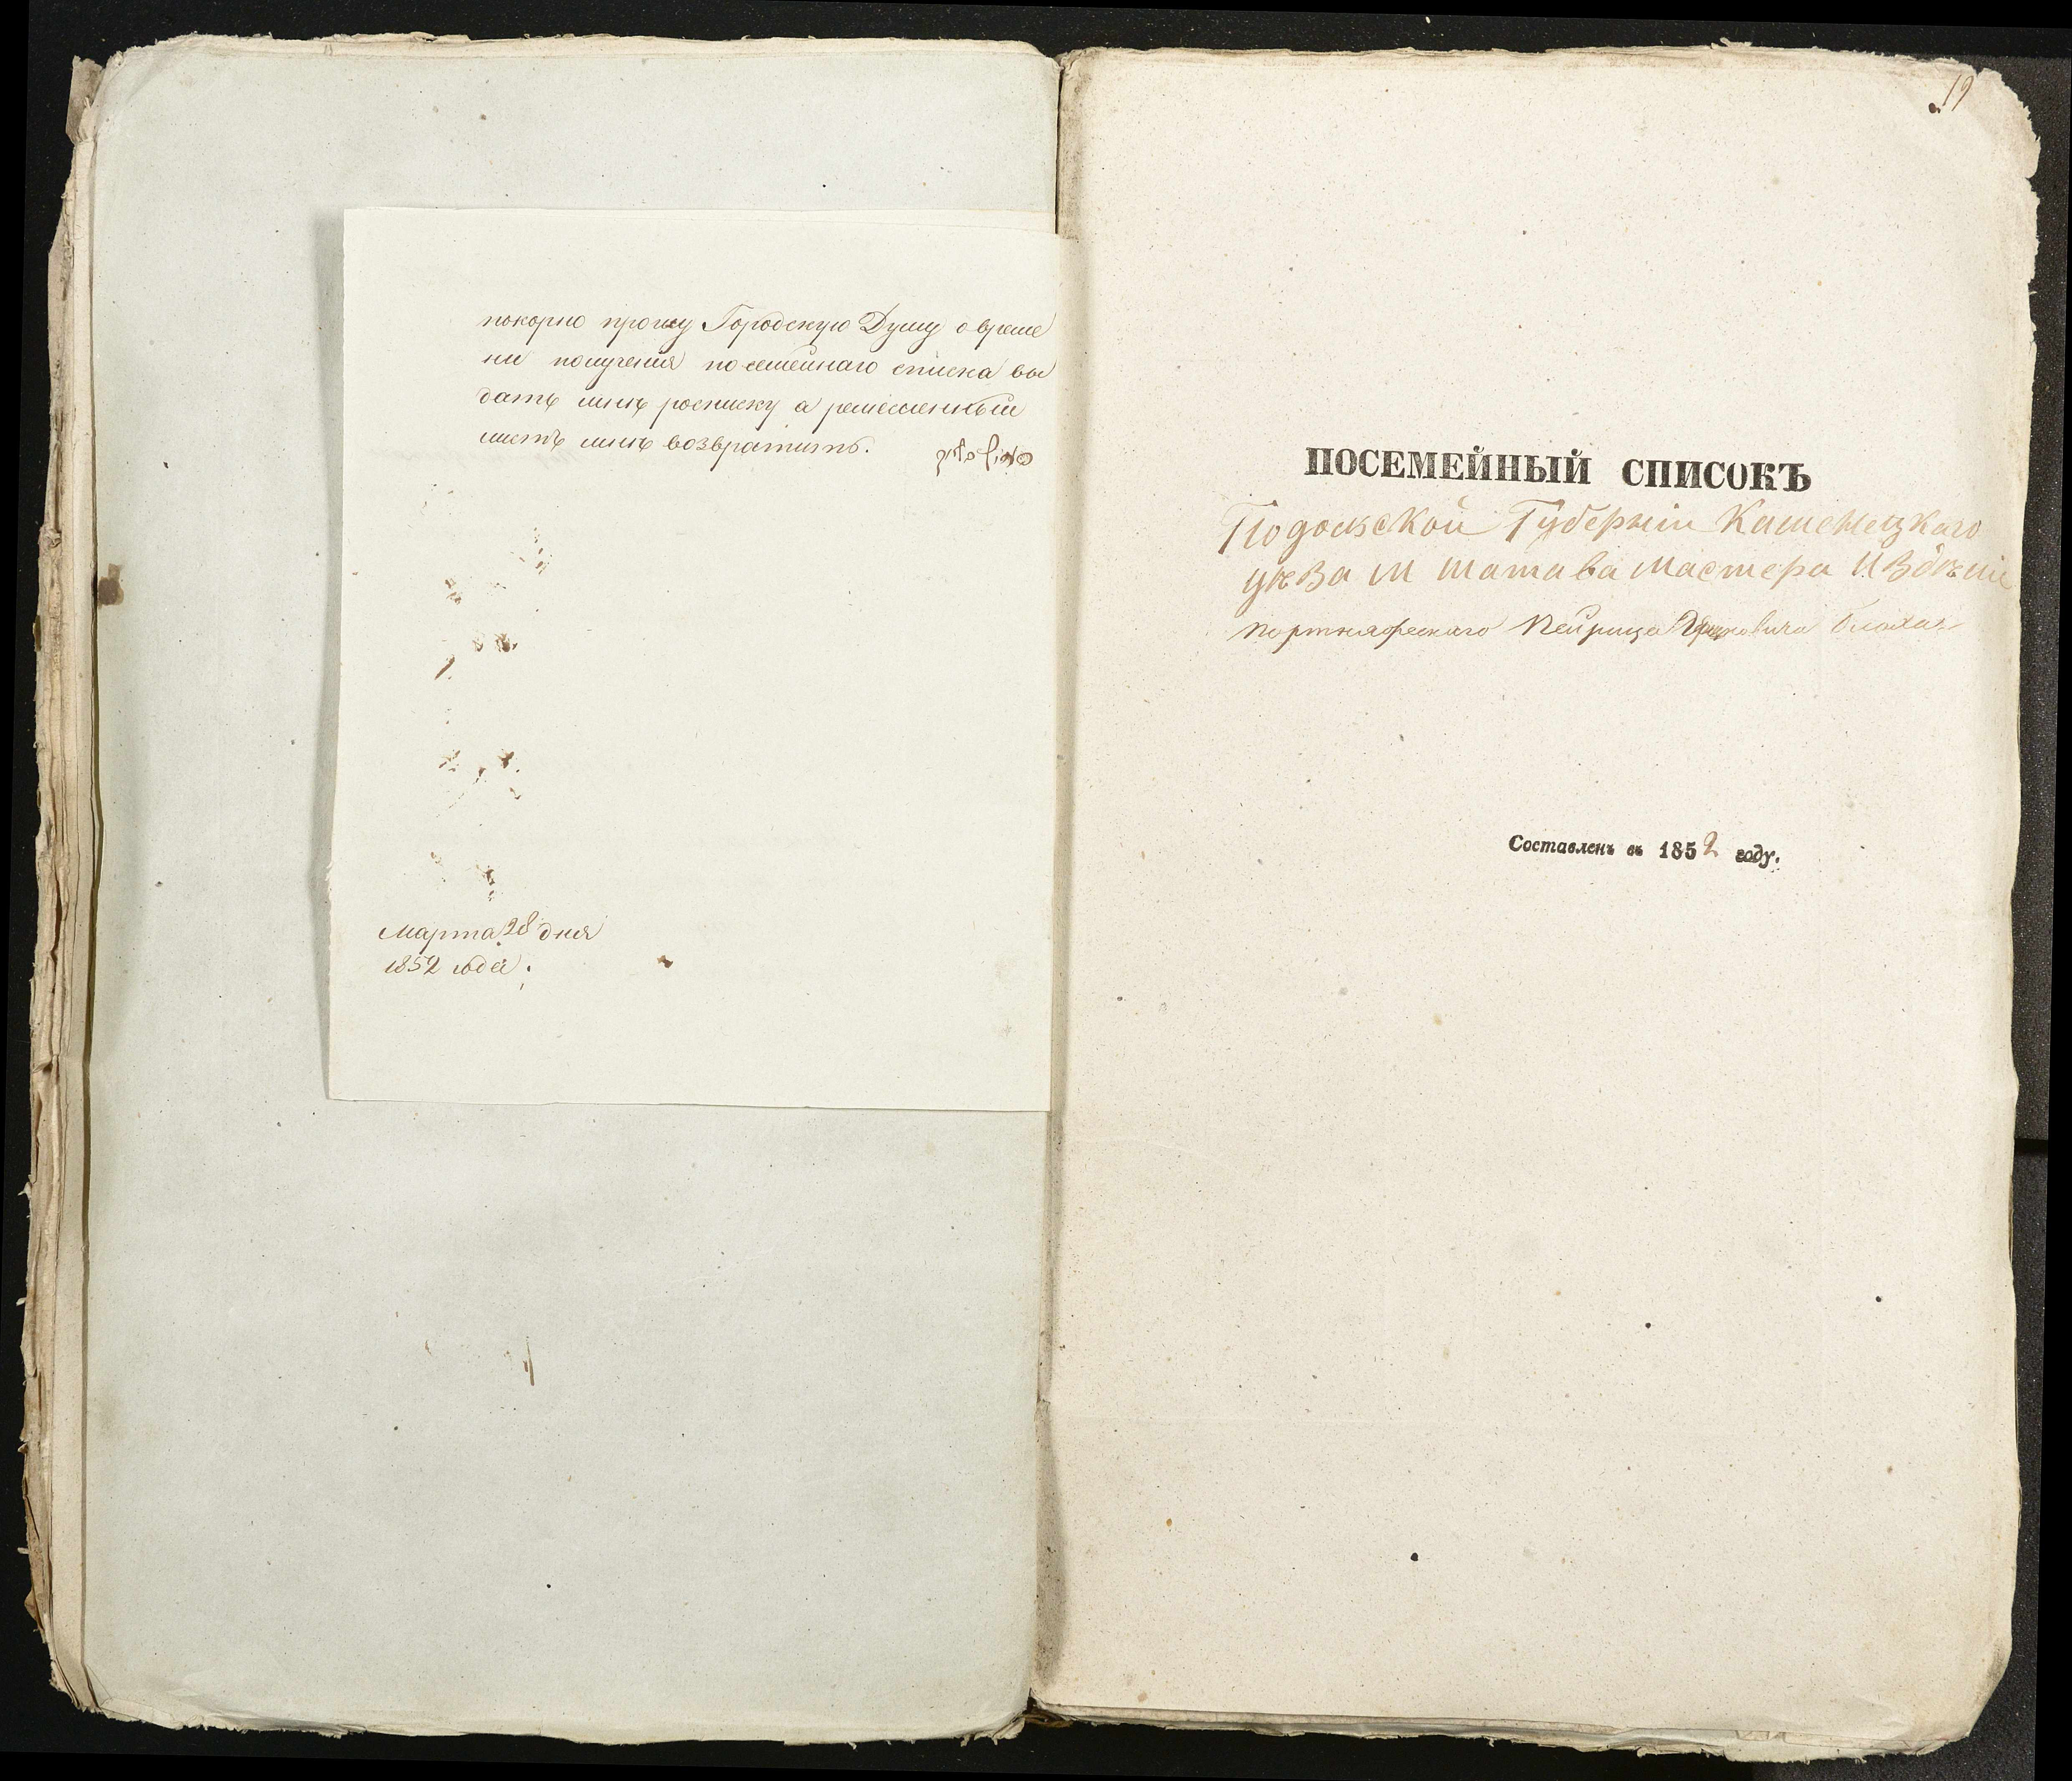 покорно прошу Городскую Думу о време
ни получения посемейнаго списка вы
дать мнѣ росписку а ремесленный
листъ мнѣ возвратить.
Марта 28 дня
1852 года.
19
ПОСЕМЕЙНЫЙ СПИСОКЪ
Подольской Губерніи Каменецкаго
уѣзда м Шатава мастера
портняжескаго
Составленъ въ 1852 году.